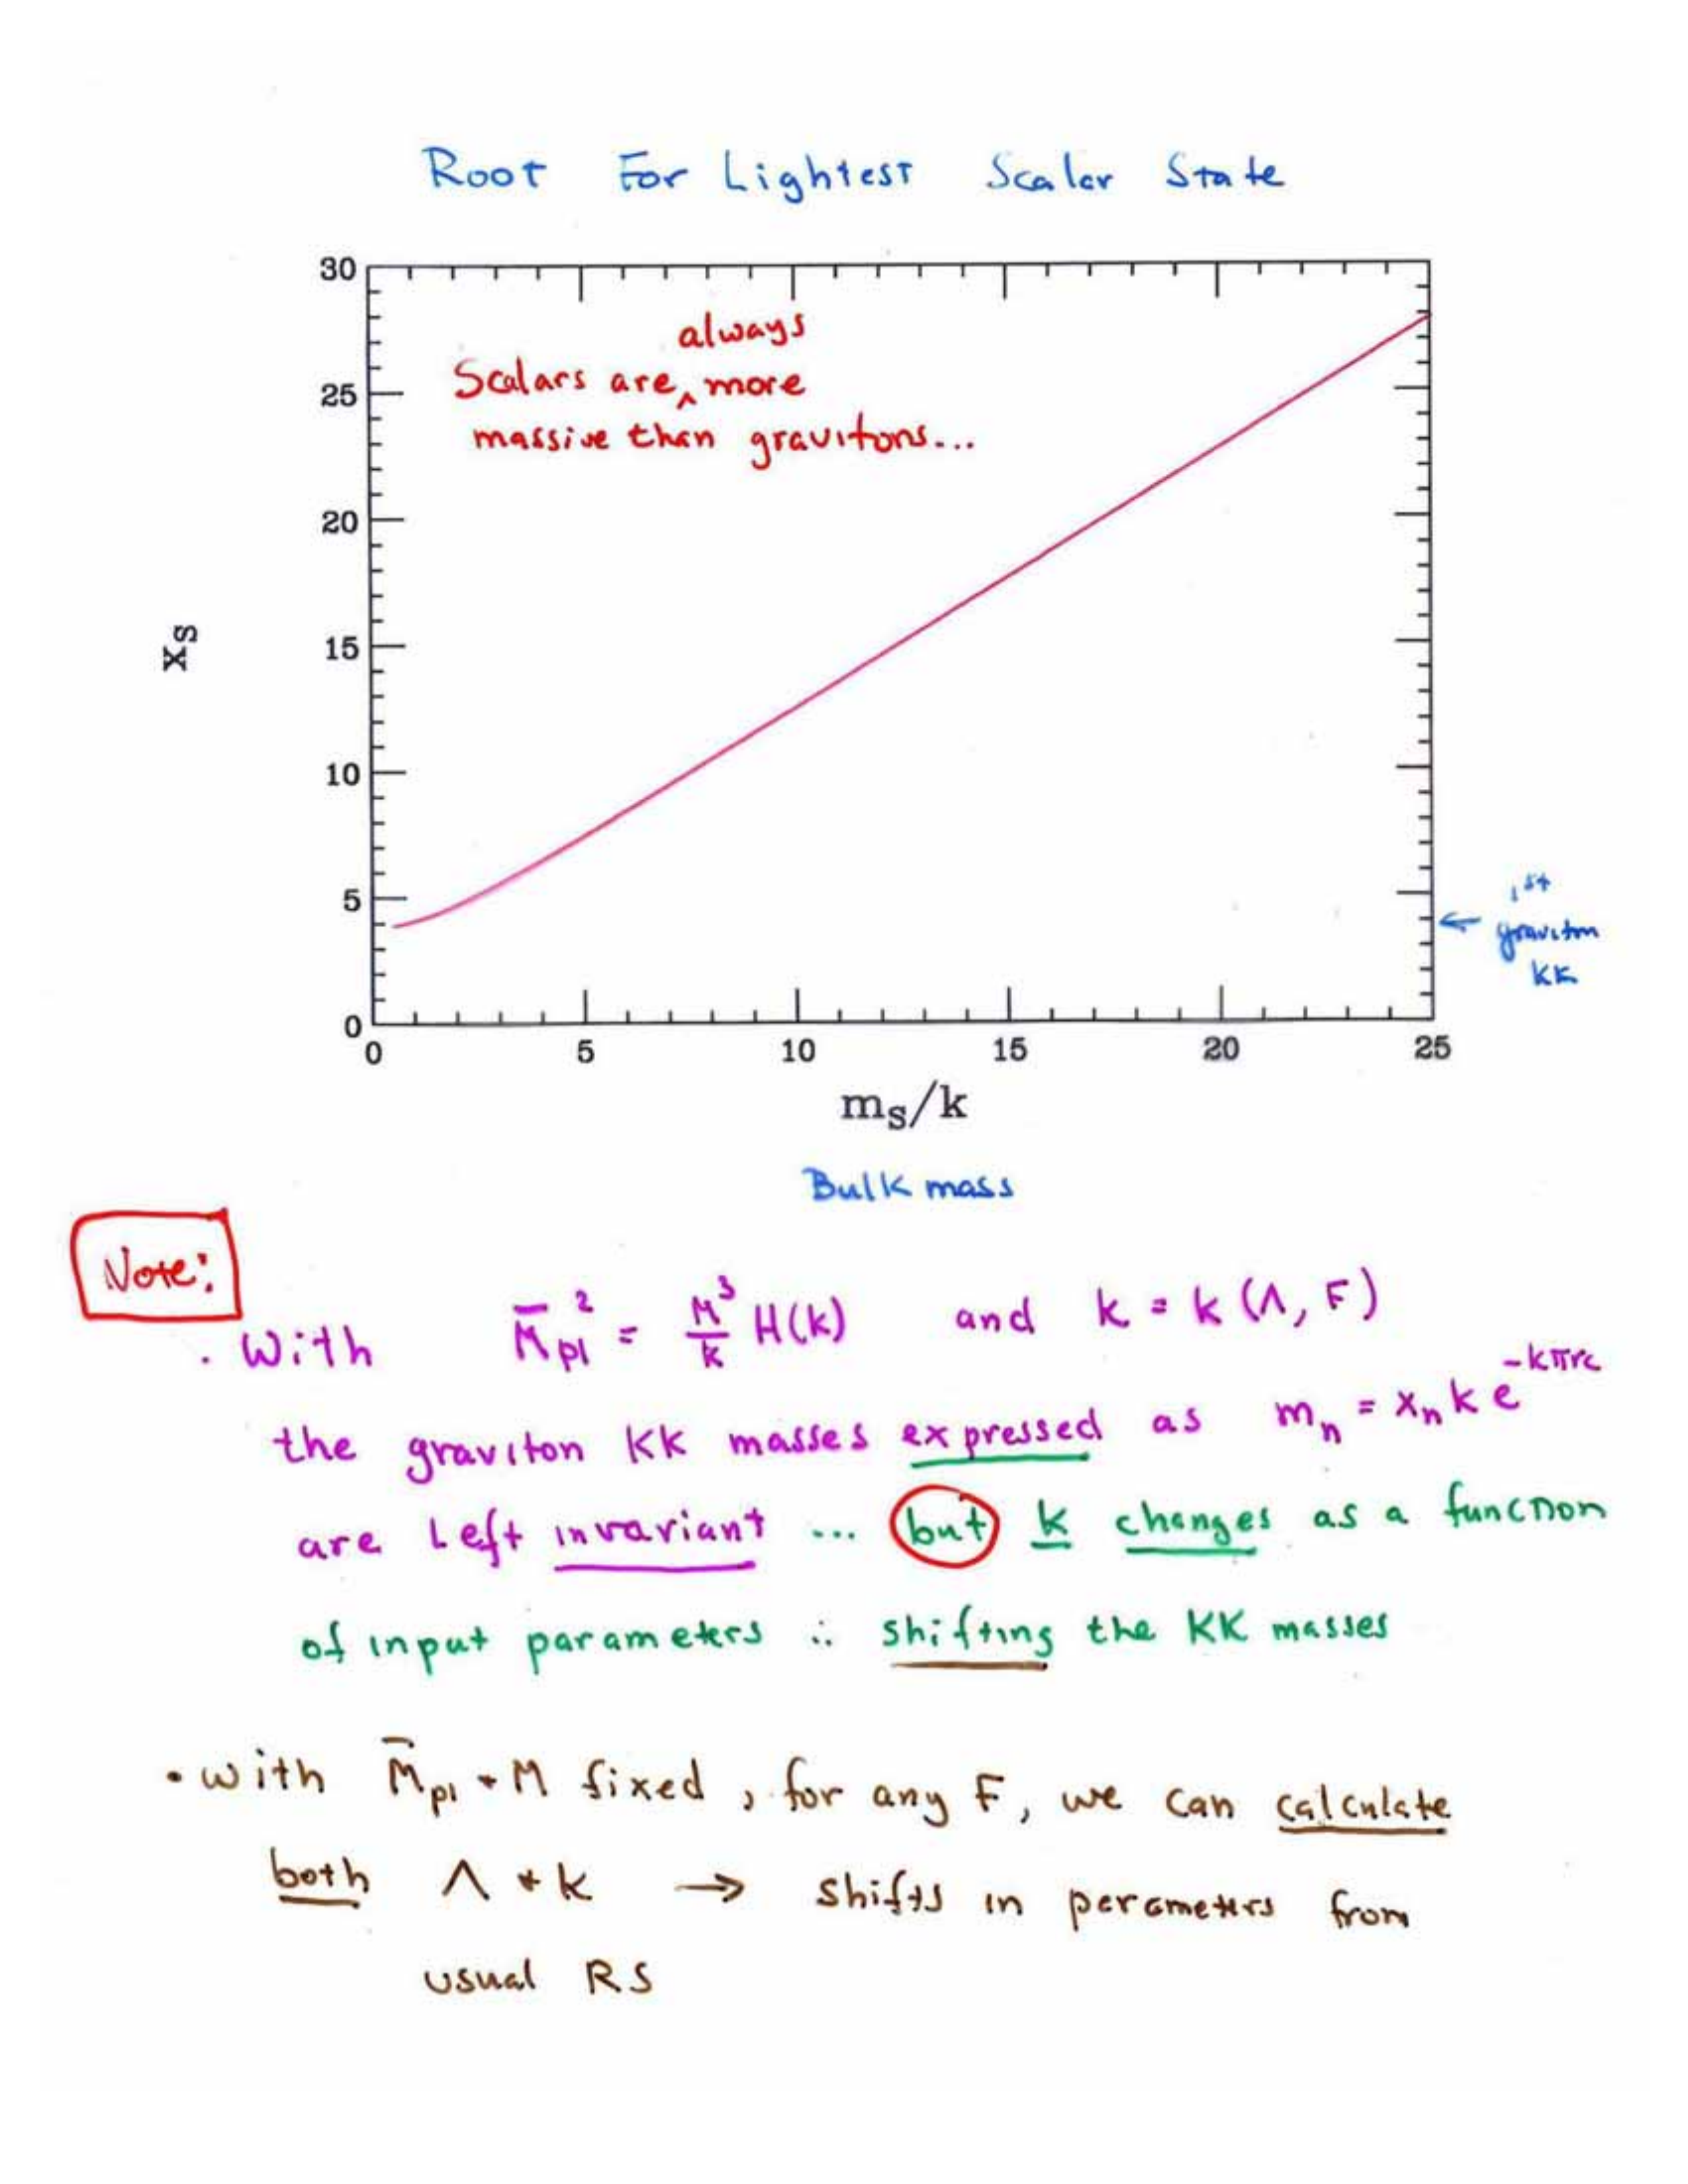 Root For Lightest Scalar State
30
25
20
15
10
5
0
x_S
always
Scalars are ^ more
massive than gravitons...
1st
graviton
KK
0 5 10 15 20 25
m_S/k
Bulk mass
Note:
· With M̄_pl² = M³/k H(k) and k = k(Λ, F)
the graviton KK masses expressed as m_n = x_n k e^{-kπrc}
are left invariant ... but k changes as a function
of input parameters ∴ shifting the KK masses
• with M̄_pl + M fixed, for any F, we can calculate
both Λ + k → shifts in parameters from
usual RS